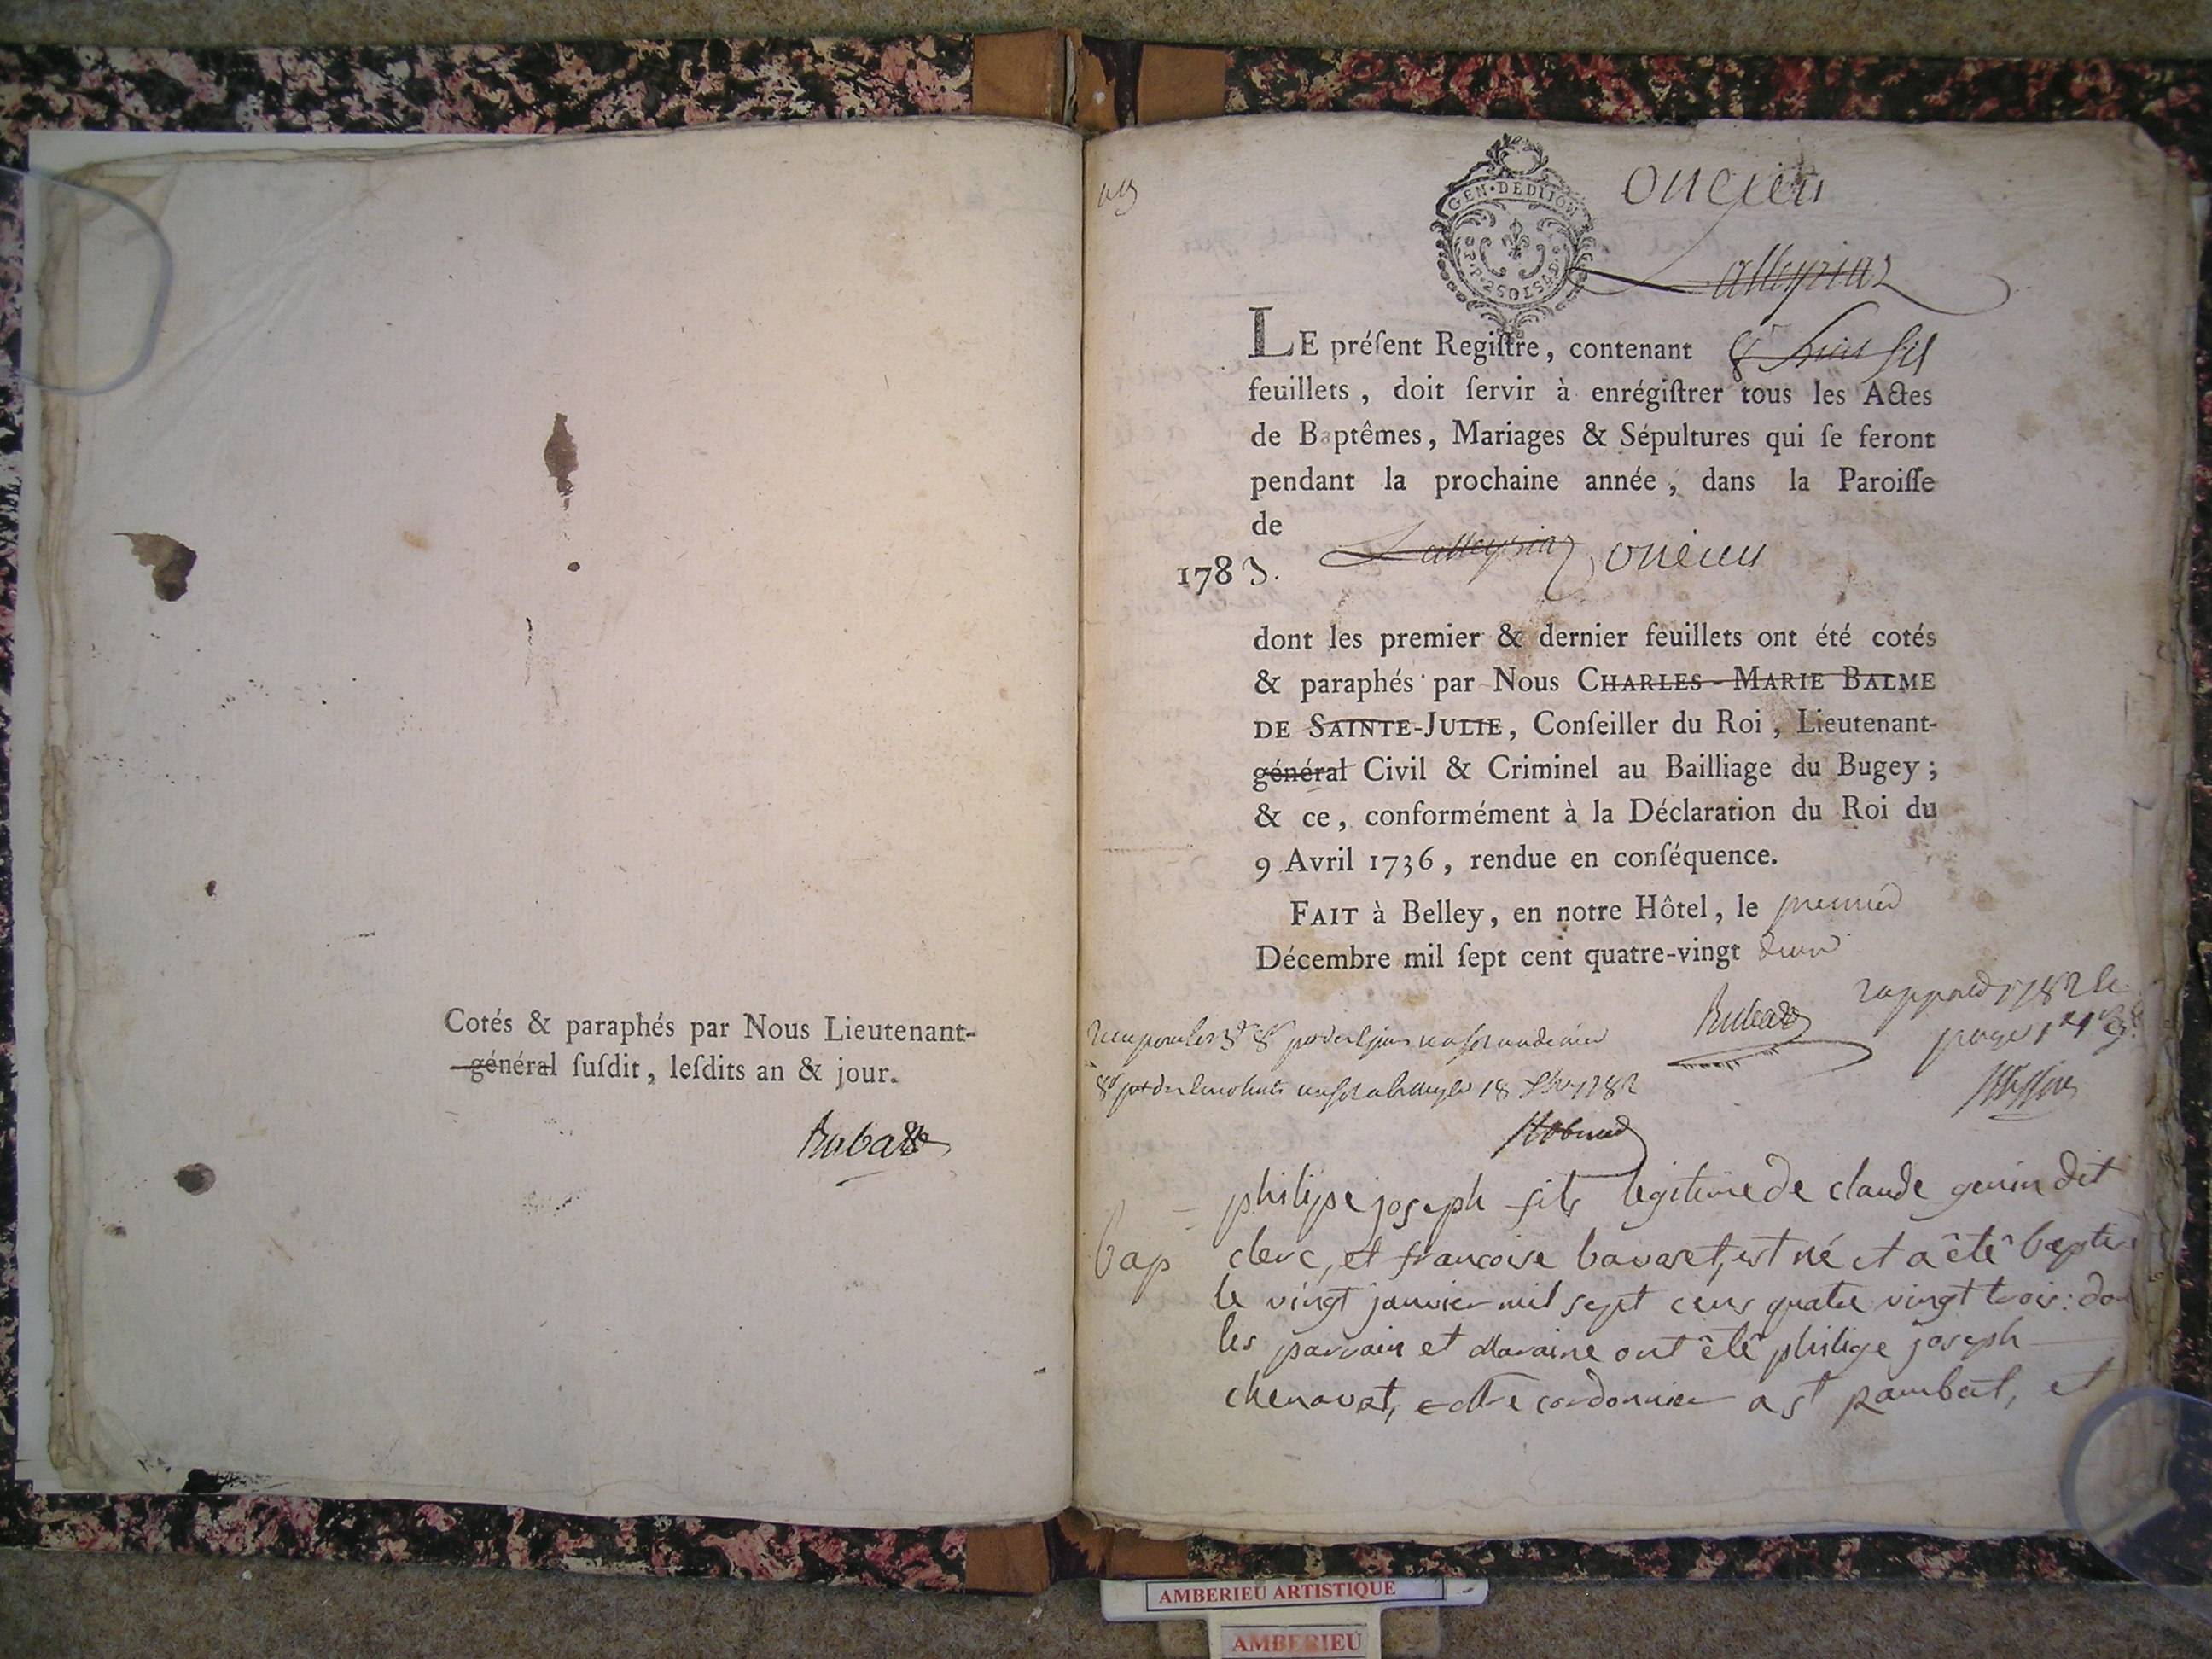 Cotés & paraphés par Nous Lieutenant-
général ſuſdit, leſdits an & jour.
Rubat
GEN. DE DIJON
oncieu
Lalleyriaz
LE préſent Regiſtre, contenant 8 huit
feuillets, doit ſervir à enrégiſtrer tous les Actes
de Baptêmes, Mariages & Sépultures qui ſe feront
pendant la prochaine année, dans la Paroiſſe
de
Lalleyriaz oncieu
1783.
dont les premier & dernier feuillets ont été cotés
& paraphés par Nous CHARLES-MARIE BALME
DE SAINTE-JULIE, Conſeiller du Roi, Lieutenant-
général Civil & Criminel au Bailliage du Bugey;
& ce, conformément à la Déclaration du Roi du
9 Avril 1736, rendue en conſéquence.
FAIT à Belley, en notre Hôtel, le premier
Décembre mil ſept cent quatre-vingt deux
Rubat
1782
18 1782
philipe joseph fils legitime de claude genin dit
bap clerc, et francoise bavaset, est né et a êtê baptisé
le vingt janvier mil sept cens quatre vingt trois: dont
les parrain et Maraine ont êtê philipe joseph
chenavat, cordonnier a st rambert, et
AMBERIEU ARTISTIQUE
AMBERIEU